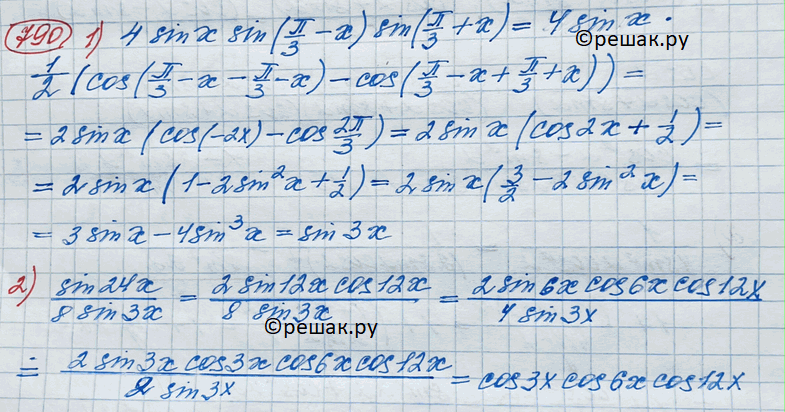 790 1) 4 sin x sin(π/3 − x) sin(π/3 + x) = 4 sin x ·
©решак.ру
1/2 (cos(π/3 − x − π/3 − x) − cos(π/3 − x + π/3 + x)) =
= 2 sin x (cos(−2x) − cos 2π/3) = 2 sin x (cos 2x + 1/2) =
= 2 sin x (1 − 2 sin² x + 1/2) = 2 sin x (3/2 − 2 sin² x) =
= 3 sin x − 4 sin³ x = sin 3x
2) sin 24x / 8 sin 3x = 2 sin 12x cos 12x / 8 sin 3x = 2 sin 6x cos 6x cos 12x / 4 sin 3x
©решак.ру
= 2 sin 3x cos 3x cos 6x cos 12x / 2 sin 3x = cos 3x cos 6x cos 12x